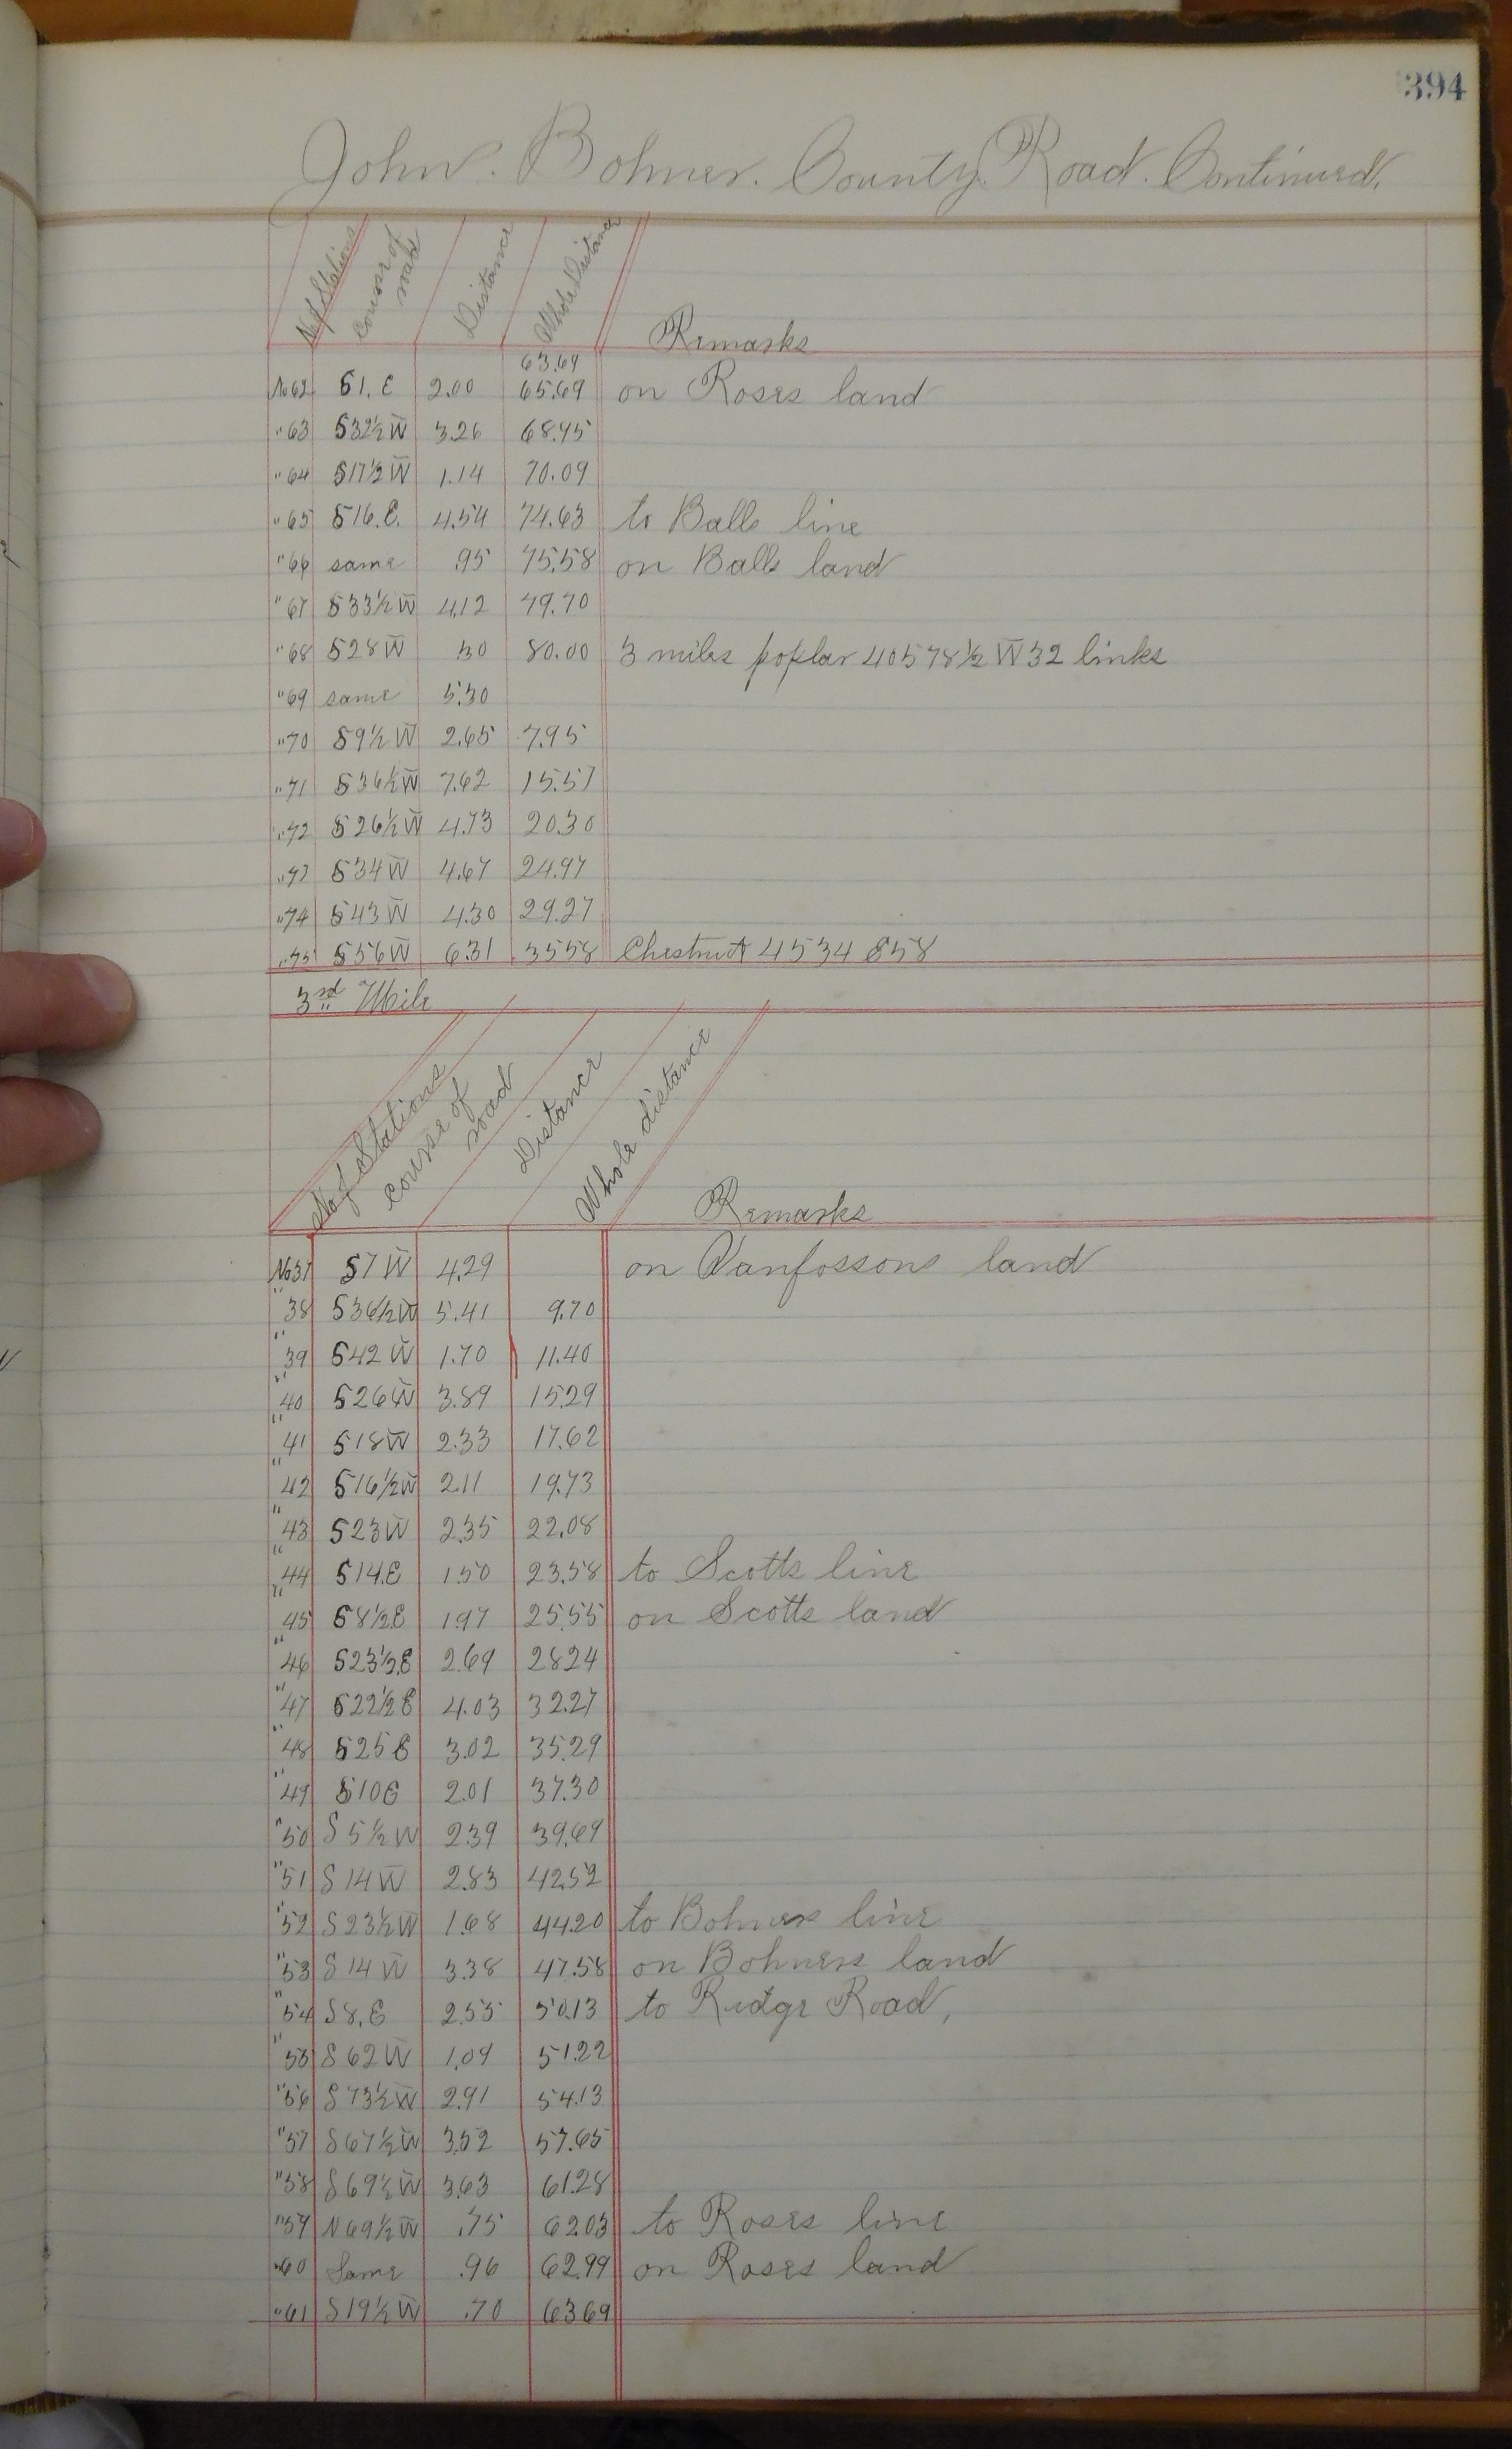 394
John. Bohner. County Road. Continued.
No of Stations course of road Distance Whole Distance Remarks
63.69
No 62 S1. E 2.00 65.69 on Roses land
" 63 S32½ W 3.26 68.95
" 64 S17½ W 1.14 70.09
" 65 S16. E. 4.54 74.63 to Balls line
" 66 same .95 75.58 on Balls land
" 67 S33½ W 4.12 79.70
" 68 S28 W .30 80.00 3 miles poplar 40 S 78½ W 32 links
" 69 same 5.30
" 70 S9½ W 2.65 7.95
" 71 S36½ W 7.62 15.57
" 72 S26½ W 4.73 20.30
" 73 S34 W 4.67 24.97
" 74 S43 W 4.30 29.27
" 75 S56 W 6.31 35.58 Chestnut 4 S 34 E 58
3rd Mile
No of Stations course of road Distance Whole distance Remarks
No 37 S7 W 4.29 on Vanfossons land
" 38 S36½ W 5.41 9.70
" 39 S42 W 1.70 11.40
" 40 S26 W 3.89 15.29
" 41 S18 W 2.33 17.62
" 42 S16½ W 2.11 19.73
" 43 S23 W 2.35 22.08
" 44 S14. E 1.50 23.58 to Scotts line
" 45 S8½ E 1.97 25.55 on Scotts land
" 46 S23½ E 2.69 28.24
" 47 S22½ E 4.03 32.27
" 48 S25 E 3.02 35.29
" 49 S10 E 2.01 37.30
" 50 S 5½ W 2.39 39.69
" 51 S 14 W 2.83 42.52
" 52 S 23½ W 1.68 44.20 to Bohners line
" 53 S 14 W 3.38 47.58 on Bohners land
" 54 S 8. E 2.55 50.13 to Ridge Road,
" 55 S 62 W 1.09 51.22
" 56 S 73½ W 2.91 54.13
" 57 S 67½ W 3.52 57.65
" 58 S 69½ W 3.63 61.28
" 59 N 69½ W .75 62.03 to Roses line
" 60 Same .96 62.99 on Roses land
" 61 S 19½ W .70 63.69